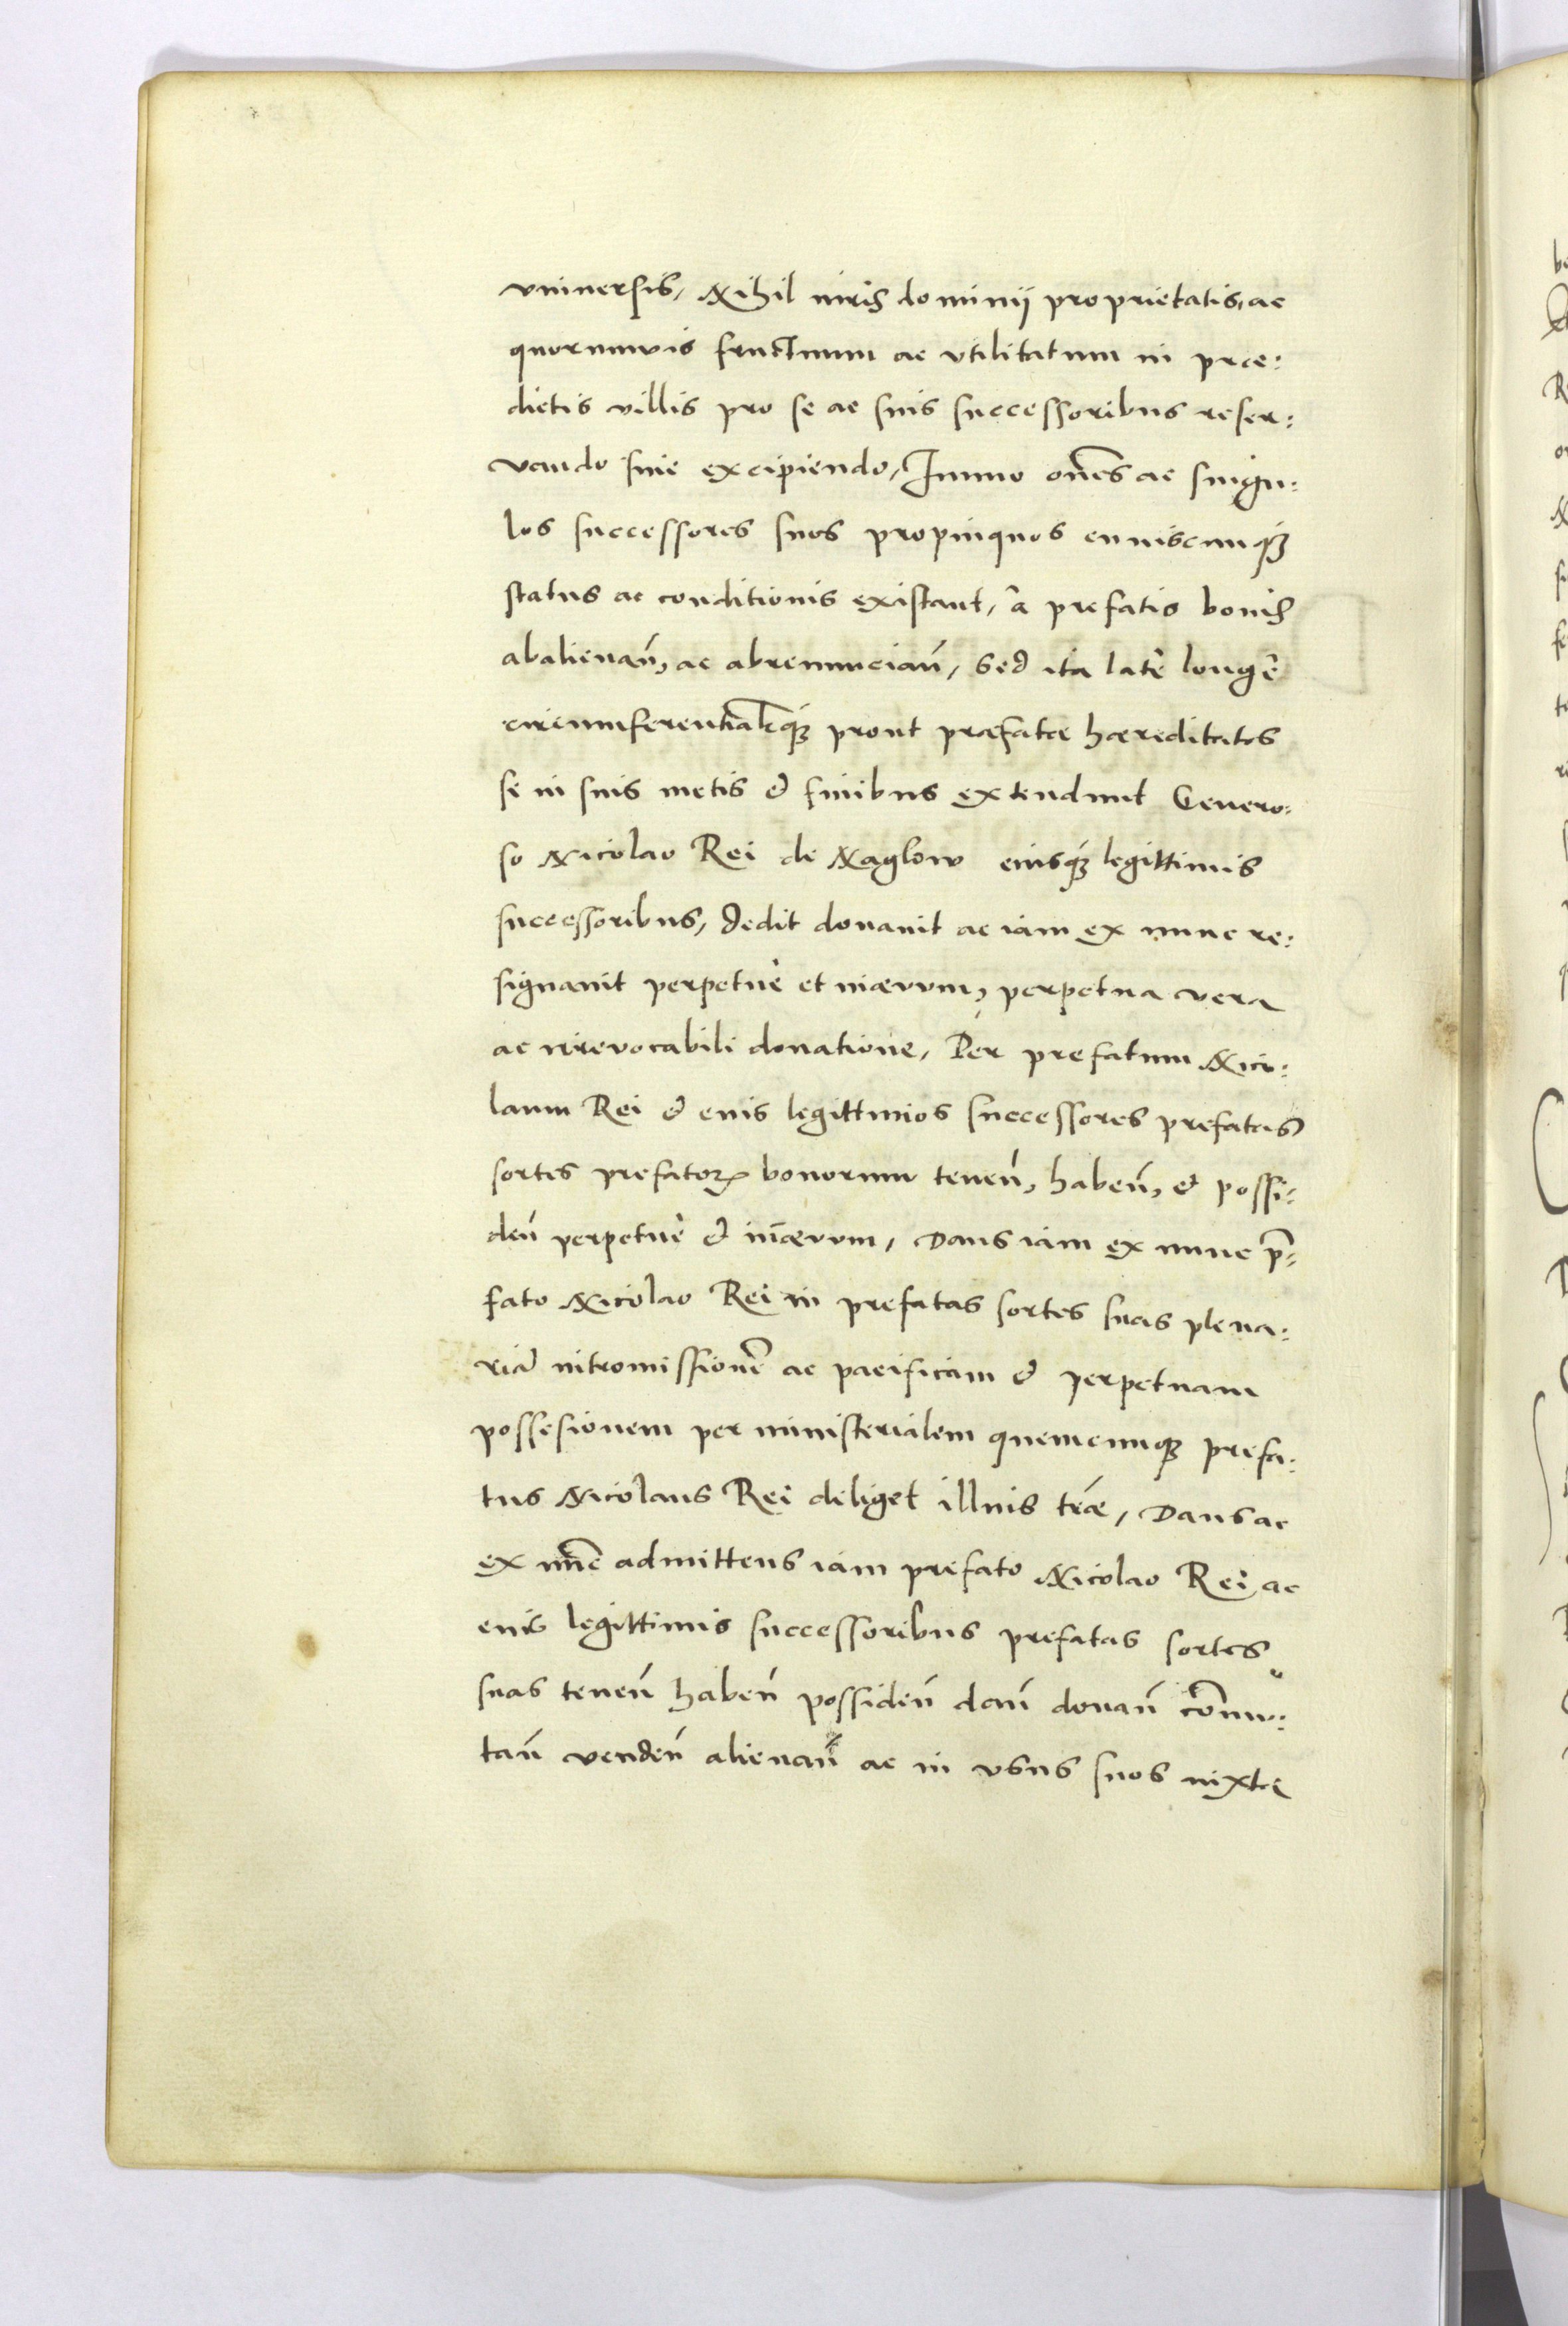 vniuersis, Nihil iuris dominij proprietatis, ac
quorumuis fructuum ac vtilitatum in prae:
dictis villis pro se ac suis successoribus reser:
vando siue excipiendo, Immo oñes ac singu:
los successores suos propinquos cuiuscunq3
status ac conditionis existant, à prefatis bonis
abalienań, ac abrenunciań, Sed ita latè longè
circumferentialiterq3 prout praefatae haereditates
se in suis metis & finibus extendunt Genero:
so Nicolao Rei de Naglow eiusq3 legittimis
successoribus, dedit donauit ac iam ex nunc re:
signauit perpetuè et inaevum, perpetua vera
ac irrevocabili donatione, Per prefatum Nico:
laum Rei & eius legittimos successores prefatas
sortes prefatoꝝ bonorum teneń, habeń, & possi:
deń perpetuè & inaevum, Dans iam ex nunc p̄:
fato Nicolao Rei in prefatas sortes suas plena:
riā intromissionē ac pacificam & perpetuam
possesionem per ministerialem quemcunq3 prefa:
tus Nicolaus Rei deliget illius trae, Dans ac
ex nūc admittens iam prefato Nicolao Rei ac
eius legittimis successoribus prefatas sortes
suas teneń habeń possideń dań donań cōmu:
tań vendeń alienań ac in vsus suos iuxta